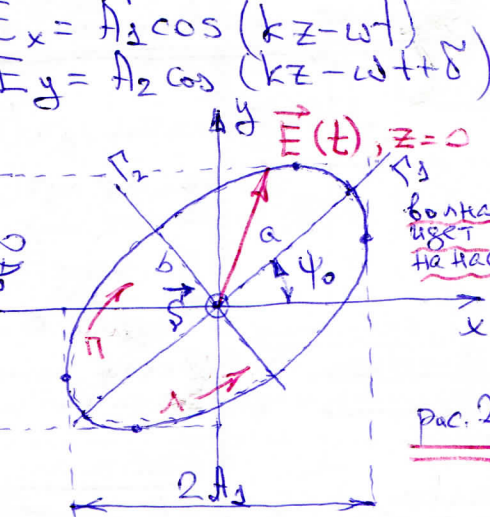 E_x = A_1 cos (kz - ωt)
E_y = A_2 cos (kz - ωt + δ)
y
E⃗(t), z = 0
r_2
r_1
волна
идет
на нас
a
b
ψ_0
S⃗
x
П
Л
рис. 2
2A_1